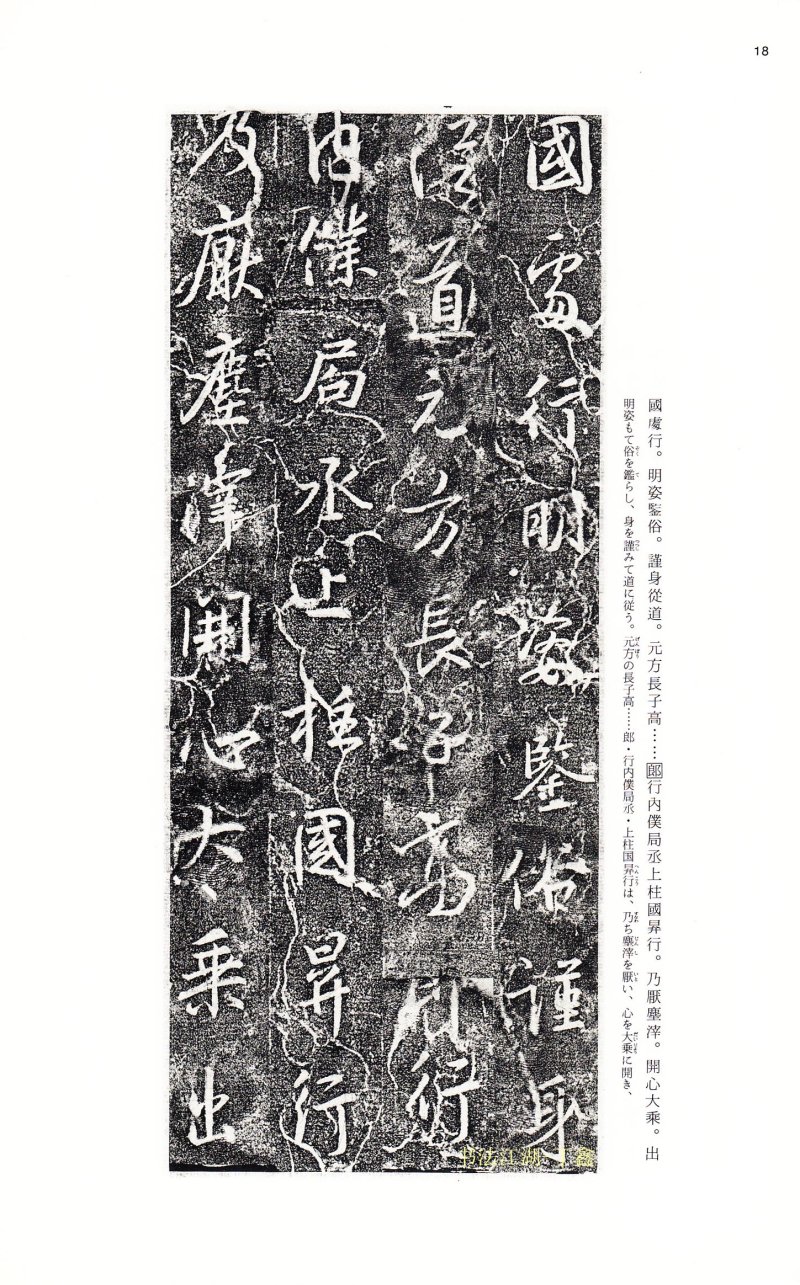 18
國處行明姿鑒俗謹身
從道元方長子高郎行
內僕局丞上柱國昇行
乃厭塵滓開心大乘出
國處行。明姿鑒俗。謹身從道。元方長子高……郎行内僕局丞上柱國昇行。乃厭塵滓。開心大乘。出
明姿もて俗を鑑らし、身を謹みて道に従う。元方の長子高……郎・行内僕局丞・上柱国昇行は、乃ち塵滓を厭い、心を大乗に開き、
书法江湖